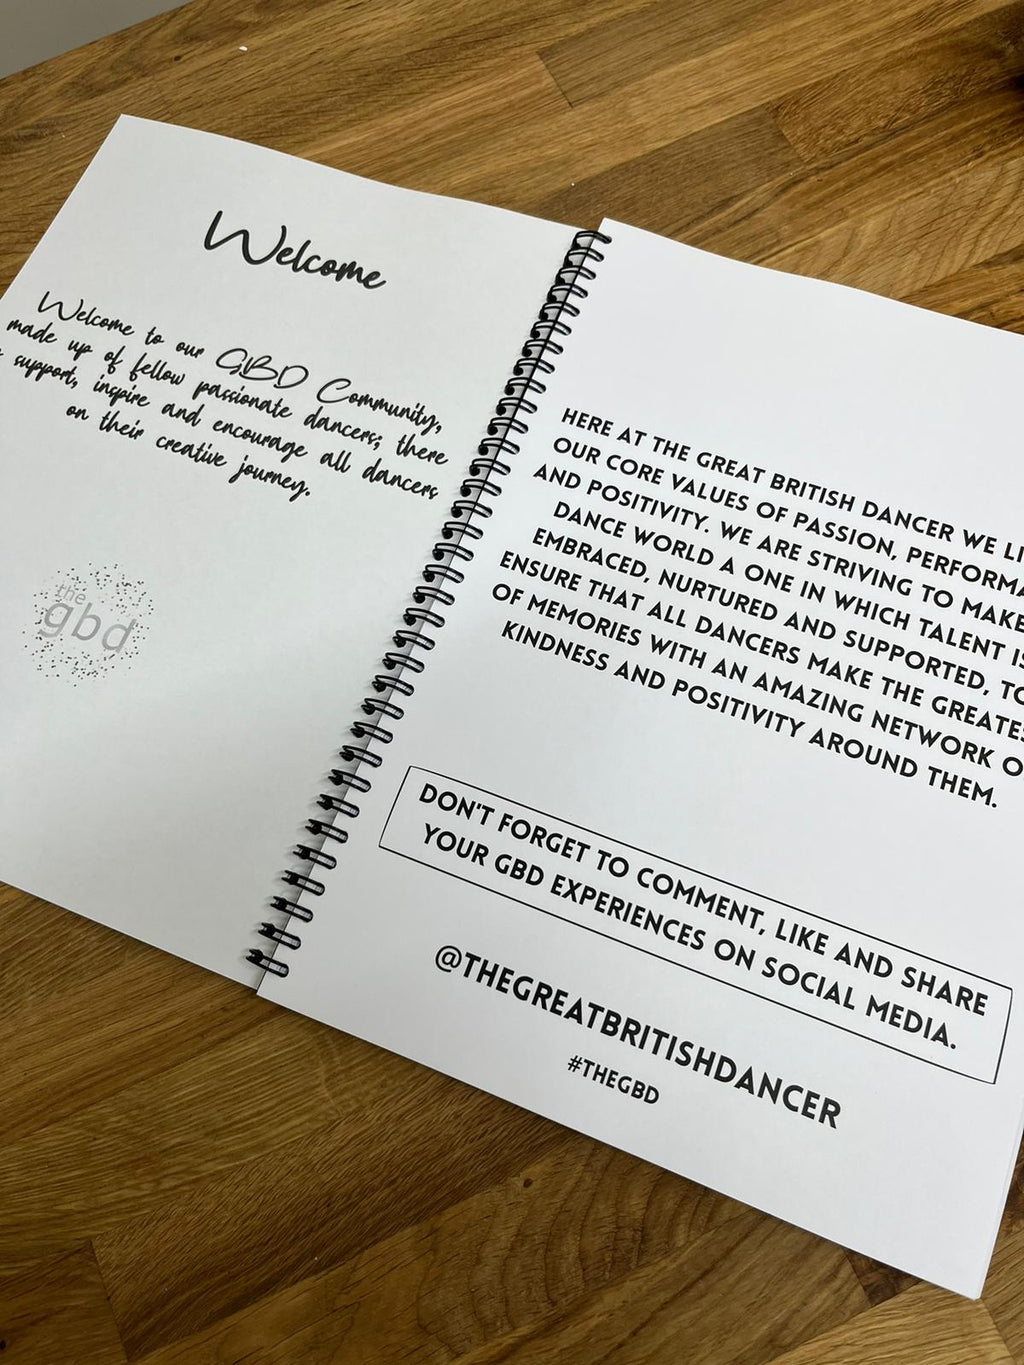 Welcome
Welcome to our GBD Community,
made up of fellow passionate dancers; there
support, inspire and encourage all dancers
on their creative journey.
the
gbd
HERE AT THE GREAT BRITISH DANCER WE
OUR CORE VALUES OF PASSION,
AND POSITIVITY. WE ARE STRIVING TO MAKE
DANCE WORLD A ONE IN WHICH TALENT
EMBRACED, NURTURED AND SUPPORTED,
ENSURE THAT ALL DANCERS MAKE THE
OF MEMORIES WITH AN AMAZING NETWORK
KINDNESS AND POSITIVITY AROUND THEM.
DON'T FORGET TO COMMENT, LIKE AND SHARE
YOUR GBD EXPERIENCES ON SOCIAL MEDIA.
@THEGREATBRITISHDANCER
#THEGBD